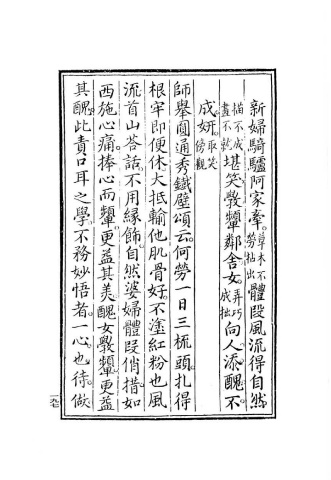 新婦騎驢阿家牽。草本不勞拈出體段風流得自然。
描不成畫不就堪笑斆顰鄰舍女。弄巧成拙向人添醜不
成妍。取笑傍觀
師舉圓通秀鐵壁頌云。何勞一日三梳頭。扎得
根牢即便休大抵輸他肌骨好。不塗紅粉也風
流首山荅話。不用緣飾自然婆婦體段俏措如
西施心痛。捧心而顰。更益其美。醜女斆顰。更益
其醜。此責口耳之學。不務妙悟者。一心也待做